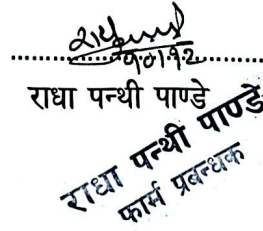 राधा पन्थी पाण्डे
राधा पन्थी पाण्डे
फार्म प्रबन्धक